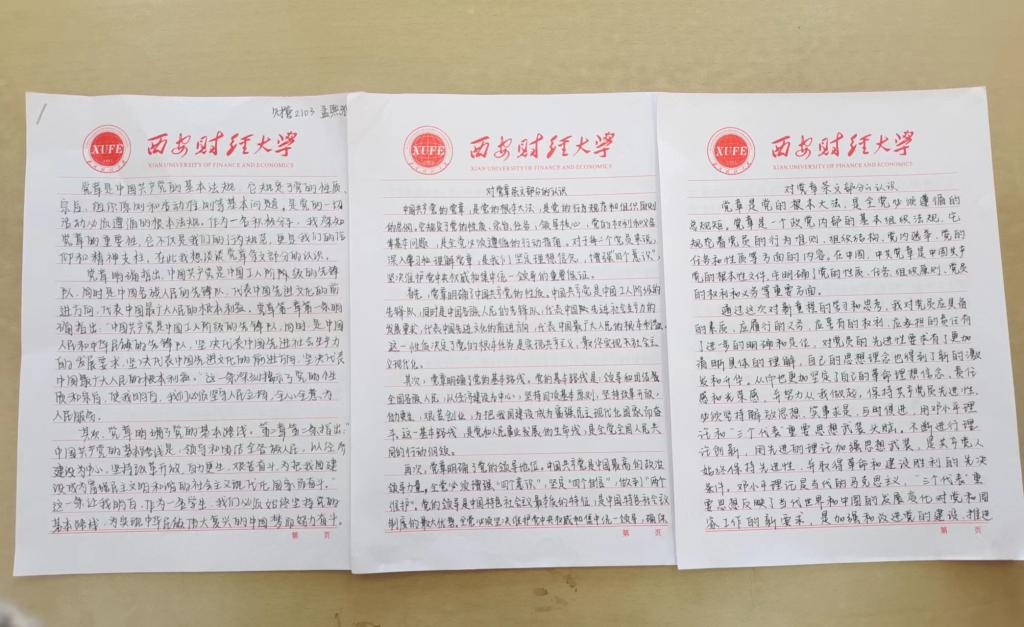 XUFE
西安财经大学
XIAN UNIVERSITY OF FINANCE AND ECONOMICS
党章是中国共产党的基本法规，它规定了党的性质、
宗旨、组织原则和活动准则等基本问题，是党的一切
活动必须遵循的根本法规。作为一名积极分子，我深知
党章的重要性，它不仅是我们的行为规范，更是我们的信
仰和精神支柱。在此我想谈谈党章条文部分的认识。
党章明确指出，中国共产党是中国工人阶级的先锋
队，同时是中国各族人民的先锋队，代表中国先进文化的前
进方向，代表中国最广大人民的根本利益。党章第一章第一条明
确指出："中国共产党是中国工人阶级的先锋队，同时是中国
人民和中华民族的先锋队，坚决代表中国先进社会生产力
的发展要求，坚决代表中国先进文化的前进方向，坚决代表
中国最广大人民的根本利益。"这一条深刻揭示了党的性
质和宗旨，使我明白，我们必须坚持人民立场，全心全意为
人民服务。
其次，党章明确了党的基本路线。第二章第一条指出：
"中国共产党的基本路线是：领导和团结全国各族人民，以经济
建设为中心，坚持改革开放，自力更生，艰苦奋斗，为把我国建
设成为富强民主文明和谐的社会主义现代化国家而奋斗。"
这一条让我明白，作为一名学生，我们必须始终坚持党的
基本路线，为实现中华民族伟大复兴的中国梦而努力奋斗。
第 页
XUFE
西安财经大学
XIAN UNIVERSITY OF FINANCE AND ECONOMICS
对党章条文部分的认识
中国共产党的党章，是党的根本大法，是党的行为规范和组织原则
的总纲，它规定了党的性质、宗旨、任务、领导核心、党的权利和义务
等基本问题，是全党必须遵循的行动指南。对于每个党员来说，
深入学习和理解党章，是我们坚定理想信念，增强"四个意识"，
坚决维护党中央权威和集中统一领导的重要保证。
首先，党章明确了中国共产党的性质。中国共产党是中国工人阶级的
先锋队，同时是中国各族人民的先锋队，代表中国先进社会生产力的
发展要求，代表中国先进文化的前进方向，代表中国最广大人民的根本利益。
这一性质决定了党的根本任务是实现共产主义，最终实现社会主
义现代化。
其次，党章明确了党的基本路线。党的基本路线是：领导和团结
全国各族人民，以经济建设为中心，坚持四项基本原则，坚持改革开放，
自力更生，艰苦创业，为把我国建设成为富强民主现代化国家而奋
斗。这一基本路线，是党和人民事业发展的生命线，是全党全国人民共
同的行动纲领。
再次，党章明确了党的领导地位。中国共产党是中国最高的政治
领导力量。全党必须增强"四个意识"，坚定"四个自信"，做到"两个
维护"。党的领导是中国特色社会主义最本质的特征，是中国特色社会主义
制度的最大优势，全党必须坚决维护党中央权威和集中统一领导，确保
第 页
XUFE
西安财经大学
XIAN UNIVERSITY OF FINANCE AND ECONOMICS
对党章条文部分认识
党章是党的根本大法，是全党必须遵循的
总规矩，党章是一个政党内部的基本组织法规，它
规范着党员的行为准则、组织结构、党内选举、党的
任务和性质等方面的内容。在中国，中共党章是中国共产
党的根本性文件，它明确了党的性质、任务、组织原则、党员
的权利和义务等重要方面。
通过这次对新章程的学习和思考，我对党员应具备
的素质，应履行的义务，应享有的权利，应承担的责任有
了进一步的明确和定位，对党员的先进性要求有了更加
清晰具体的理解，自己的思想理念也得到了新的激
发和升华。从中也更加坚定了自己的革命理想信念、责任
感和光荣感，并努力从我做起，保持共产党员先进性，
必须坚持解放思想、实事求是、与时俱进，用邓小平理
论和"三个代表"重要思想武装头脑。不断进行理
论创新，用先进的理论加强思想武装，是共产党人
始终保持先进性，并取得革命和建设胜利的先决
条件。邓小平理论是当代的马克思主义，"三个代表"重
要思想反映了当代世界和中国的发展变化对党和国
家工作的新要求，是加强和改进党的建设、推进
第 页